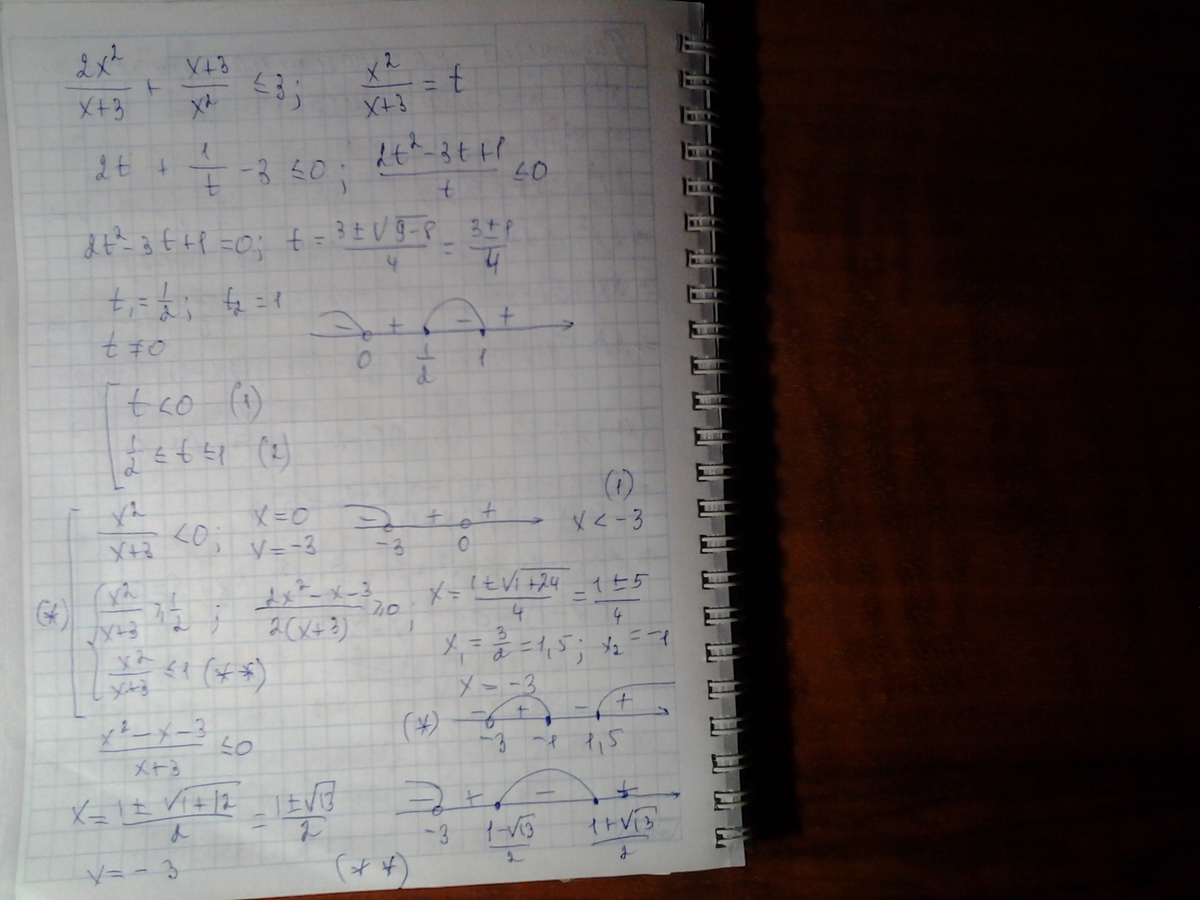 2x²/(x+3) + (x+3)/x² ≤ 3; x²/(x+3) = t
2t + 1/t - 3 ≤ 0; (2t² - 3t + 1)/t ≤ 0
2t² - 3t + 1 = 0; t = (3 ± √(9-8))/4 = (3 ± 1)/4
t₁ = 1/2; t₂ = 1
t ≠ 0
- + - +
0 1/2 1
[ t < 0 (1)
1/2 ≤ t ≤ 1 (2)
(1)
[ x²/(x+3) < 0; x = 0 x = -3
- + +
-3 0
x < -3
(*) { x²/(x+3) ≥ 1/2; (2x² - x - 3)/(2(x+3)) ≥ 0; x = (1 ± √(1+24))/4 = (1 ± 5)/4
x²/(x+3) ≤ 1 (**)
x₁ = 3/2 = 1,5; x₂ = -1
x = -3
(*) - + - +
-3 -1 1,5
(x² - x - 3)/(x+3) ≤ 0
x = (1 ± √(1+12))/2 = (1 ± √13)/2
- + - +
-3 (1-√13)/2 (1+√13)/2
x = -3 (**)